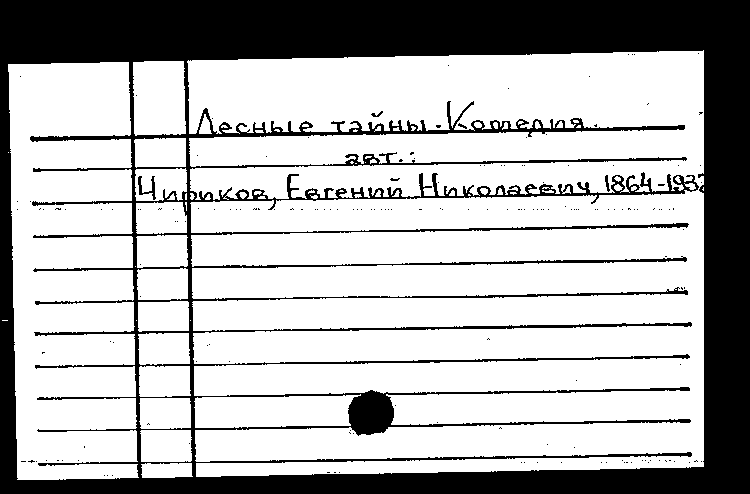 Лесные тайны. Комедия.
авт.:
Чириков, Евгений Николаевич, 1864-1932